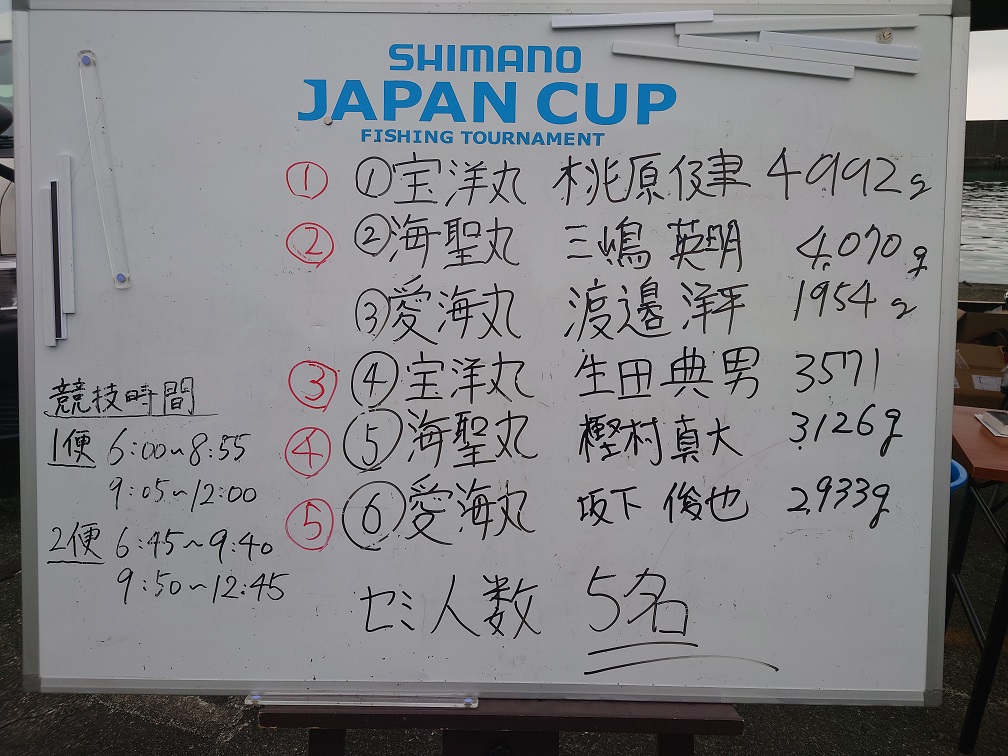 SHIMANO
JAPAN CUP
FISHING TOURNAMENT
① ①宝洋丸 桃原伇聿 4992g
② ②海聖丸 三嶋 英明 4,070g
③愛海丸 渡邊 洋平 1954g
③ ④宝洋丸 生田典男 3571
④ ⑤海聖丸 樫村真大 3,126g
⑤ ⑥愛海丸 坂下 俊也 2,933g
セミ人数 5名
競技時間
1便 6:00~8:55
9:05~12:00
2便 6:45~9:40
9:50~12:45